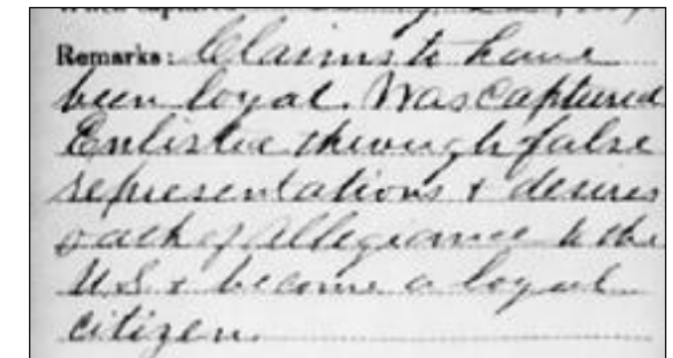 When captured
Remarks: Claims to have
been loyal. Was captured
Enlisted through false
representations & desires
oath of allegiance to the
U.S. & become a loyal
citizen.